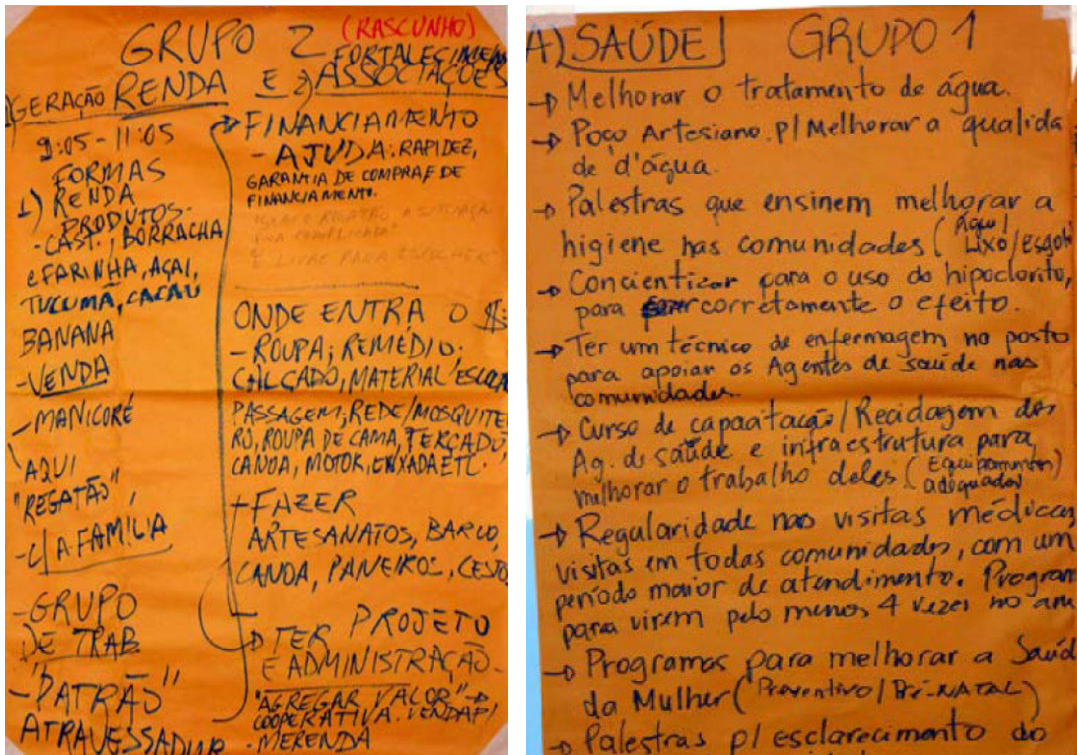 GRUPO 2 (RASCUNHO)
1) GERAÇÃO RENDA E 2) FORTALECIMEN
ASSOCIAÇÕES
9:05 - 11:05
FORMAS
1) RENDA
PRODUTOS -
- CAST., BORRACHA
e FARINHA, AÇAI,
TUCUMÃ, CACAU
BANANA
- VENDA
- MANICORÉ
AQUI
"REGATÃO",
- C/ A FAMÍLIA
- GRUPO
DE TRAB
- "PATRÃO"
ATRAVESSADOR
FINANCIAMENTO
- AJUDA: RAPIDEZ,
GARANTIA DE COMPRAE DE
FINANCIAMENTO.
É LIVRE PARA ESCOLHER
ONDE ENTRA O $:
- ROUPA; REMÉDIO;
CALÇADO, MATERIAL ESCOLA
PASSAGEM; REDE/MOSQUITEI
RO, ROUPA DE CAMA, TERÇADO,
CANOA, MOTOR, ENXADA ETC.
+ FAZER
ARTESANATOS, BARCO,
CANOA, PANEIROS, CESTO
TER PROJETO
E ADMINISTRAÇÃO -
"AGREGAR VALOR" →
COOPERATIVA. VENDA P/
- MERENDA
A) SAÚDE GRUPO 1
→ Melhorar o tratamento de água.
→ Poço Artesiano. p/ Melhorar a qualida
de d'água.
→ Palestras que ensinem melhorar a
higiene nas comunidades (Água/
Lixo/Esgoto
→ Concientizar para o uso do hipoclorito,
para fazer corretamente o efeito.
→ Ter um técnico de enfermagem no posto
para apoiar os Agentes de saúde nas
comunidades.
→ Curso de capacitação/Reciclagem dos
Ag. de saúde e infraestrutura para
melhorar o trabalho deles (Equipamentos
adequados)
→ Regularidade nas visitas médicas,
visitas em todas comunidades, com um
período maior de atendimento. Program
para virem pelo menos 4 vezes no ano
→ Programas para melhorar a Saúd
da Mulher (Preventivo/Pré-NATAL)
→ Palestras p/ esclarecimento do